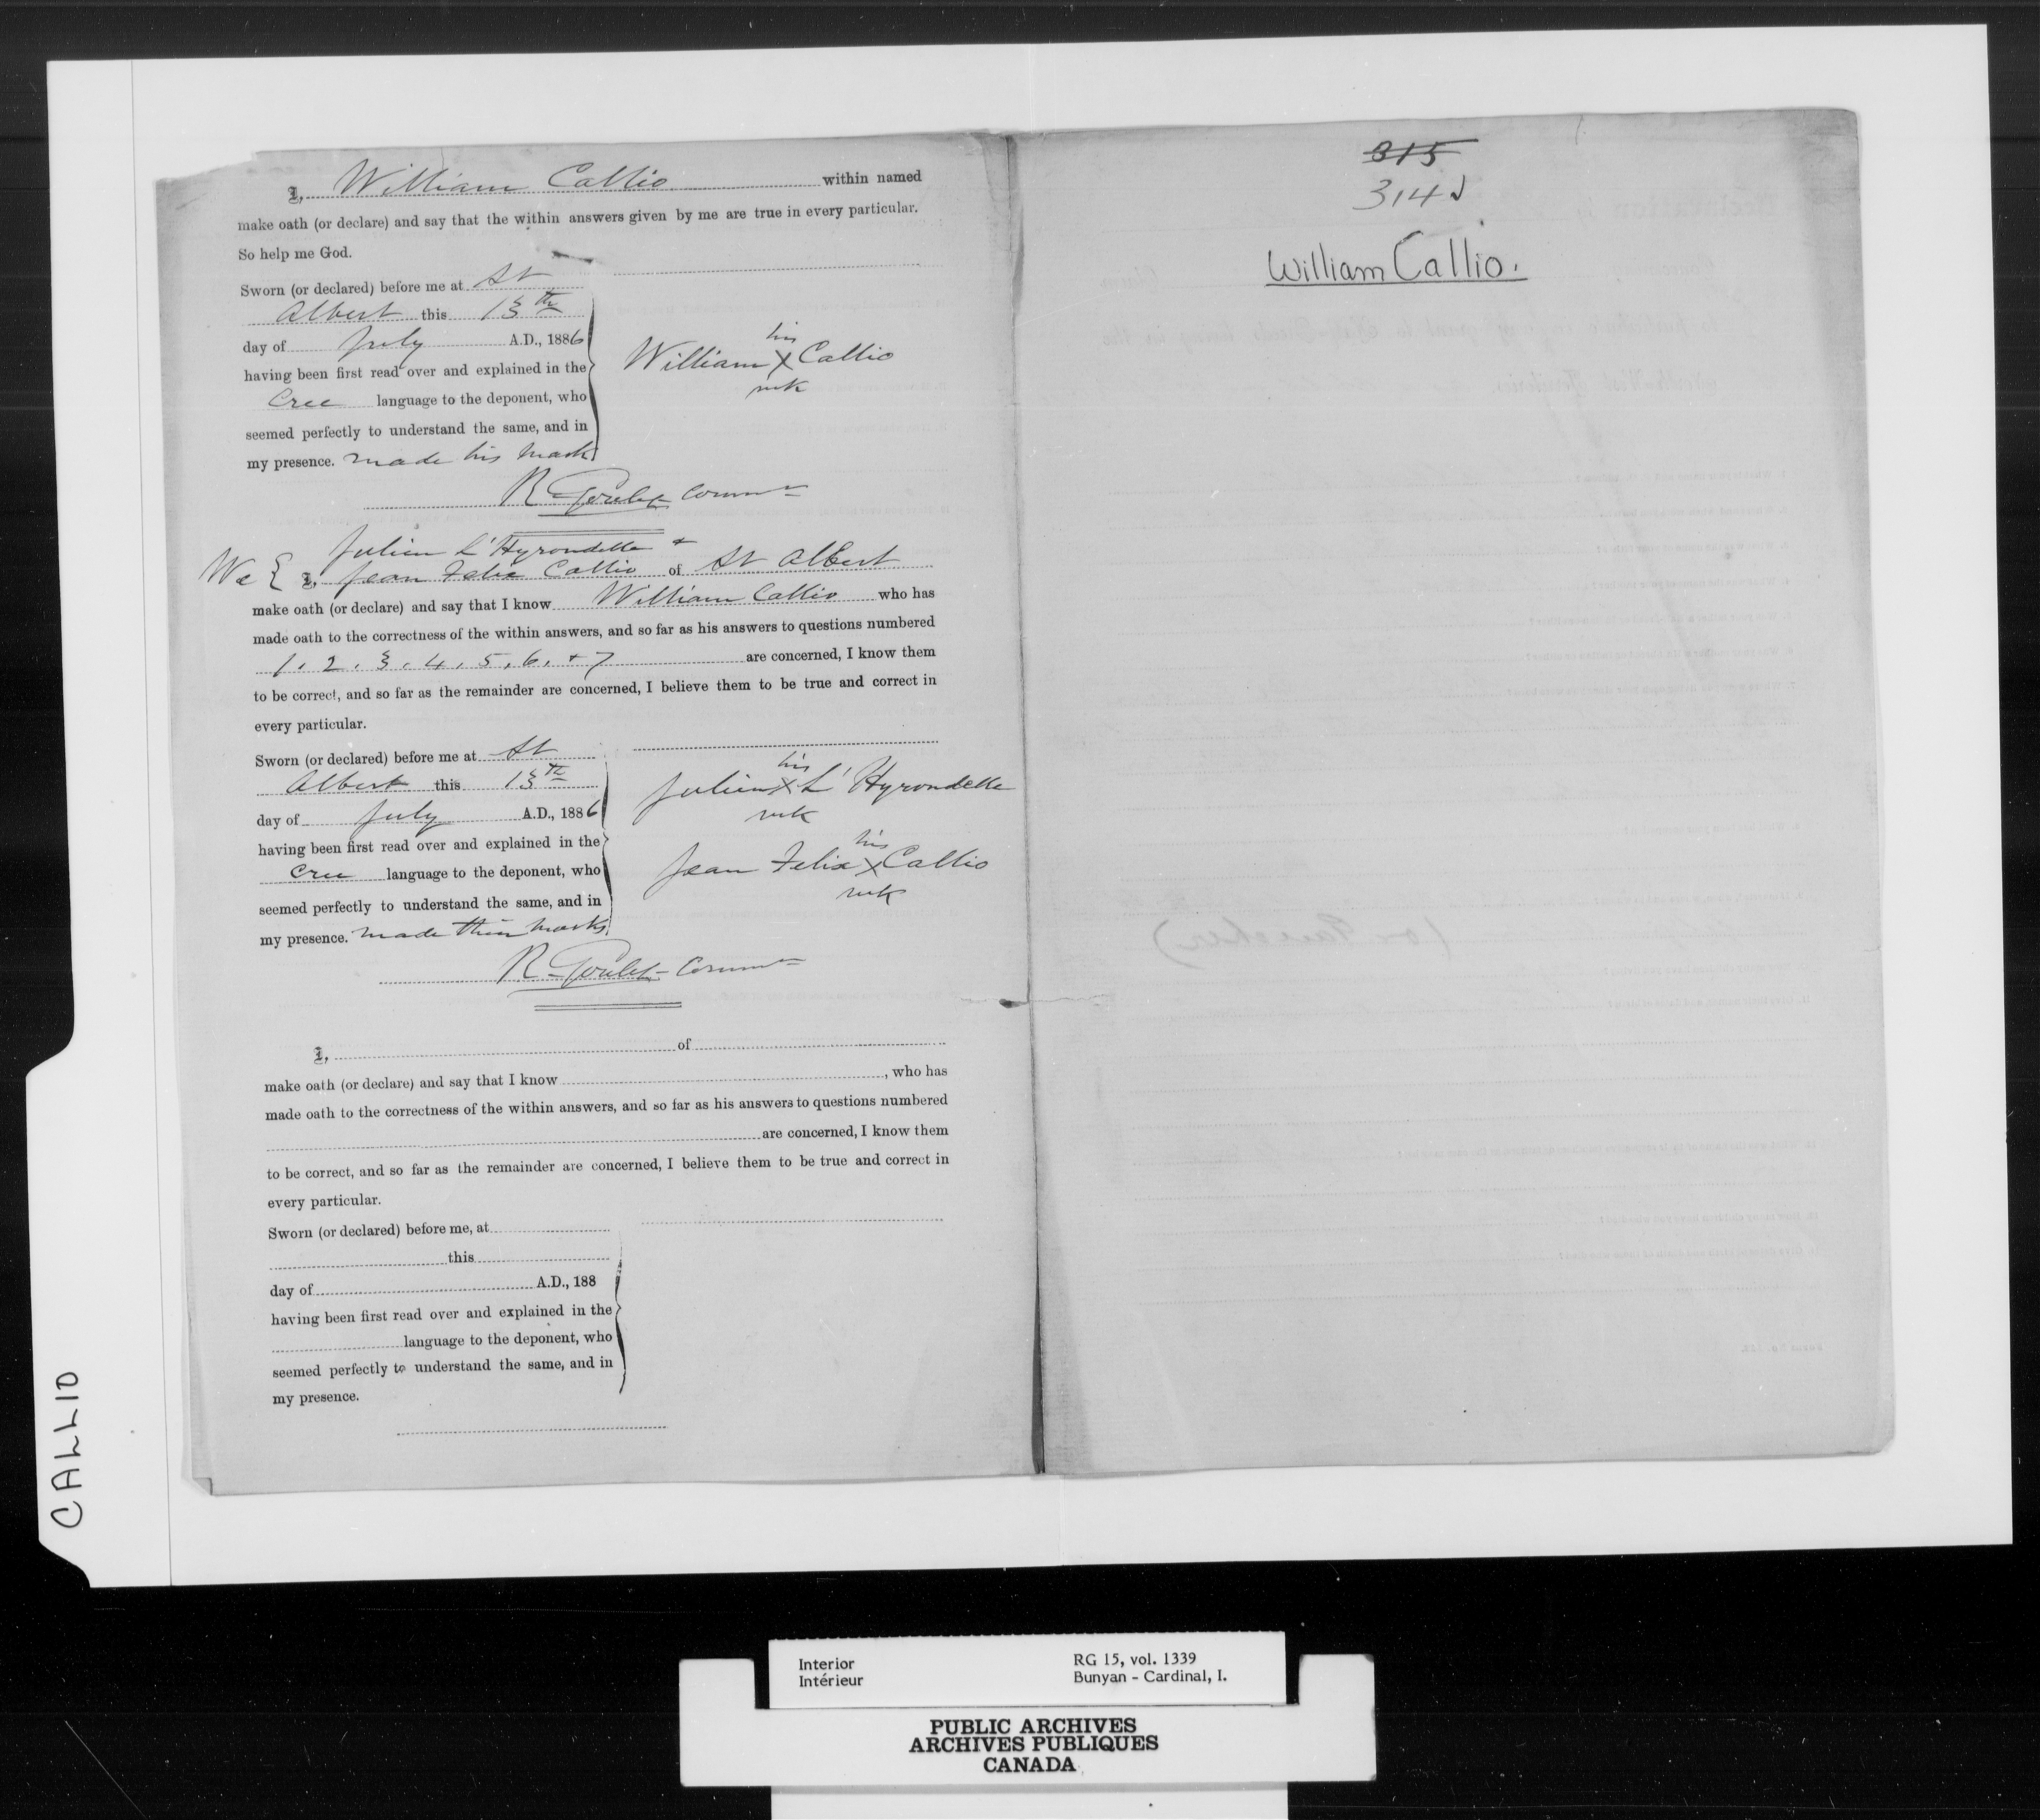 I, William Callio within named
make oath (or declare) and say that the within answers given by me are true in every particular.
So help me God.
Sworn (or declared) before me at St
Albert this 13th
day of July A.D., 1886
having been first read over and explained in the
Cree language to the deponent, who
seemed perfectly to understand the same, and in
my presence. made his mark
his
William X Callio
mk
R Goulet Commr
Julien L'Hyrondelle +
We { I, Jean Felix Callio of St Albert
make oath (or declare) and say that I know William Callio who has
made oath to the correctness of the within answers, and so far as his answers to questions numbered
1. 2. 3. 4. 5. 6. + 7 are concerned, I know them
to be correct, and so far as the remainder are concerned, I believe them to be true and correct in
every particular.
Sworn (or declared) before me at St
Albert this 13th
day of July A.D., 1886
having been first read over and explained in the
Cree language to the deponent, who
seemed perfectly to understand the same, and in
my presence. made their marks
his
Julien X L'Hyrondelle
mk
his
Jean Felix X Callio
mk
R Goulet Commr
I, of
make oath (or declare) and say that I know , who has
made oath to the correctness of the within answers, and so far as his answers to questions numbered
are concerned, I know them
to be correct, and so far as the remainder are concerned, I believe them to be true and correct in
every particular.
Sworn (or declared) before me, at
this
day of A.D., 188
having been first read over and explained in the
language to the deponent, who
seemed perfectly to understand the same, and in
my presence.
315
314
William Callio.
CALLIO
Interior RG 15, vol. 1339
Intérieur Bunyan - Cardinal, I.
PUBLIC ARCHIVES
ARCHIVES PUBLIQUES
CANADA